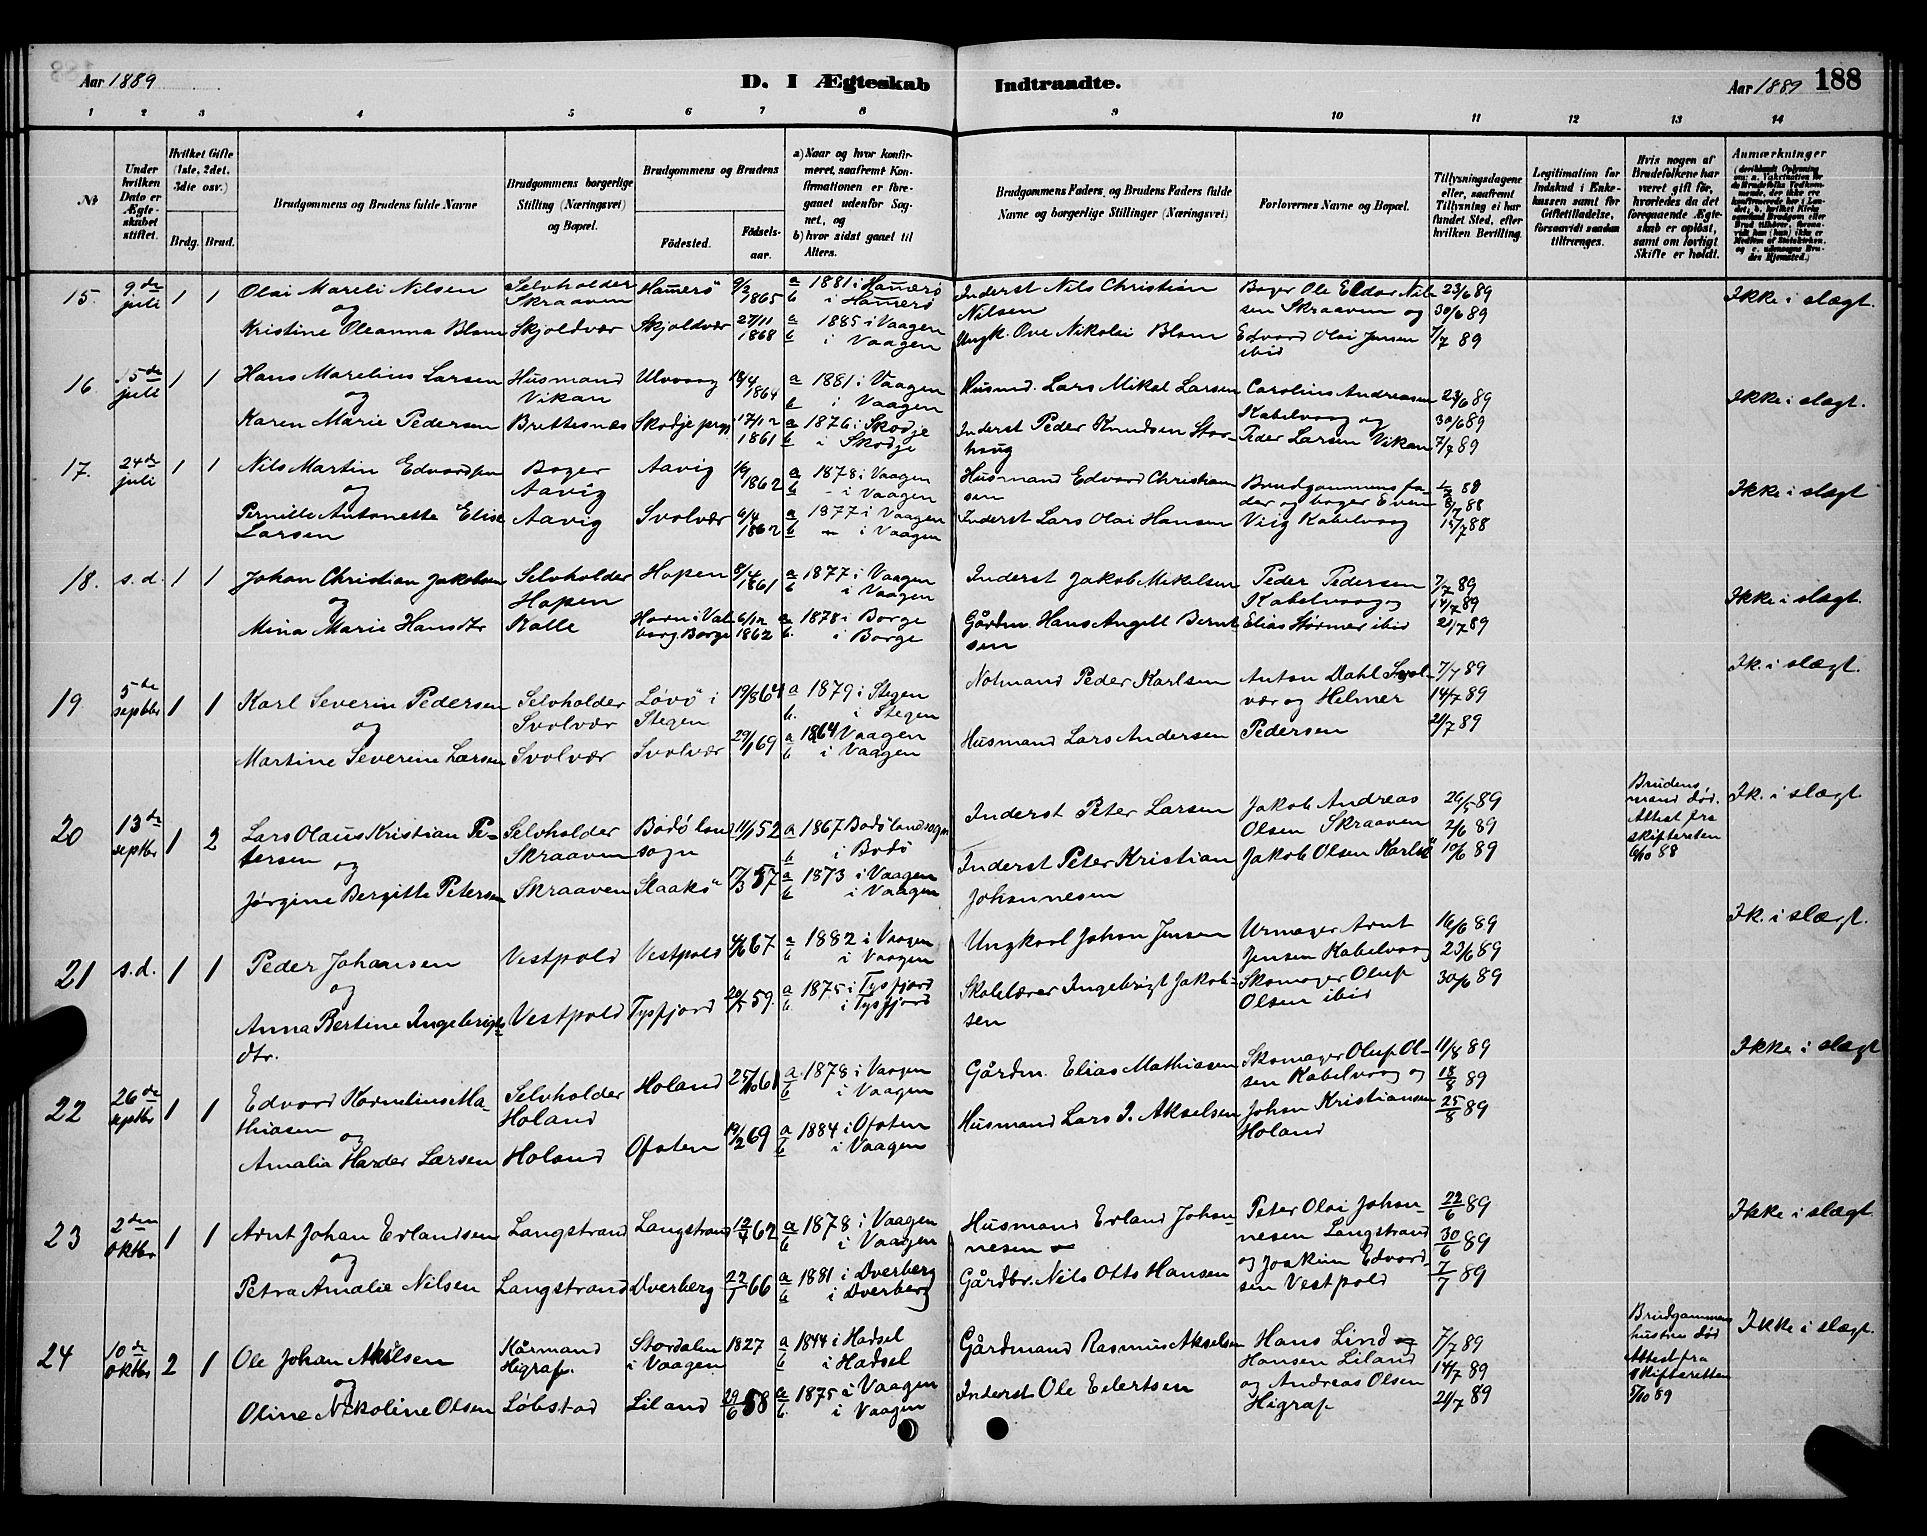 Aar 1889
D. I Ægteskab Indtraadte.
Aar 1889 188
1 2 3 4 5 6 7 8 9 10 11 12 13 14
No
Under hvilken Dato er Ægteskabet stiftet.
Hvilket Gifte (1ste, 2det, 3die osv.)
Brdg. Brud.
Brudgommens og Brudens fulde Navne
Brudgommens borgerlige Stilling (Næringsvei) og Bopæl.
Brudgommens og Brudens
Fødested.
Fødselsaar.
a) Naar og hvor konfirmeret, saafremt Konfirmationen er foregaaet udenfor Sognet, og
b) hvor sidst gaaet til Alters.
Brudgommens Faders og Brudens Faders fulde Navne og borgerlige Stillinger (Næringsvei)
Forlovernes Navne og Bopæl.
Tillysningsdagene eller, saafremt Tillysning ei har fundet Sted, efter hvilken Bevilling.
Legitimation for Indskud i Enkekassen samt for Giftetilladelse, forsaavidt saadan tiltrænges.
Hvis nogen af Brudefolkene har været gift før, hvorledes da det foregaaende Ægteskab er opløst, samt om lovligt Skifte er holdt.
Anmærkninger
15. 9de juli 1 1 Olai Mareli Nilsen Selvholder Skraaven Hamerö 9/2 1865 a 1881 i Hamerö b i Hamerö Inderst Nils Christian Nilsen Boger Ole Edvar Nilsen Skraaven og 23/6 89 30/6 89 Ikke i slægt.
og
Kristine Oleanna Blom Skjoldvær Skjoldvær 27/11 1868 a 1885 i Vaagen b i Vaagen Ungk. Ove Nikolai Blom Edvard Olai Jensen ibid 7/7 89
16. 15de juli 1 1 Hans Marelius Larsen Husmand Vikan Ulvvaag 1864 a 1881 i Vaagen b i Vaagen Husmd. Lars Mikal Larsen Carolius Andreasen Kabelvaag og 23/6 89 30/6 89 Ikke i slægt.
og
Karen Marie Pedersen Brettesnæs Skodje prgj 17/12 1861 a 1876 i Skodje b i Skodje Inderst Peder Knudsen Storhaug Peder Larsen Vikan 7/7 89
17. 24de juli 1 1 Nils Martin Edvardsen Boger Aavig Aavig 1862 a 1878 i Vaagen b - i Vaagen Husmand Edvard Christiansen Brudgommens fader og boger Even 88 8/7 88 Ikke i slægt
og
Pernille Antonette Elise Larsen Aavig Svolvær 6/4 1862 a 1877 i Vaagen b i Vaagen Inderst Lars Olai Hansen Viig Kabelvaag 15/7 88
18. s.d. 1 1 Johan Christian Jakobsen Selvholder Hopen Hopen 8/4 1861 a 1877 i Vaagen b i Vaagen Inderst Jakob Mikelsen Peder Pedersen Kabelvaag og 7/7 89 14/7 89 Ikke i slægt.
og
Mina Marie Hansdtr Kalle Havn i Valborg, Borge 6/12 1862 a 1878 i Borge b. i Borge Gårdm. Hans Angell Berntsen Elias Størmer ibid 21/7 89
19 5de septbr 1 1 Karl Severin Pedersen Selvholder Svolvær Løvö i Stegen 19/8 64 a 1879 i Stegen b. i Stegen Notmand Peder Karlsen Anton Dahl Svolvær og Helmer 7/7 89 14/7 89 Ik. i slægt.
og
Martine Severine Larsen Svolvær Svolvær 29/1 69 a 1864 Vaagen b i Vaagen Husmand Lars Andersen Pedersen 21/7 89
20 13de septbr 1 2 Lars Olaus Kristian Petersen Selvholder Skraaven Bodö landsogn 11/1 52 a 1867 Bodö landsogn b i Bodö Inderst Peter Larsen Jakob Andreas Olsen Skraaven 26/5 89 2/6 89 Brudens mand død. Attest fra skifteretten 6/10 88 Ik. i slægt.
og
Jørgine Bergitte Petersen Skraaven Slaakö 17/3 57 a 1873 i Vaagen b i Vaagen Inderst Peter Kristian Johannesen Jakob Olsen Karlsö 10/6 89
21 s.d. 1 1 Peder Johansen Vestpold Vestpold 4/6 67 a 1882 i Vaagen b i Vaagen Ungkarl Johan Jensen Urmager Arnt Jensen Kabelvaag 16/6 89 23/6 89 Ik. i slægt.
og
Anna Bertine Ingebrigtsdtr. Vestpold Tysfjord 59. a 1875 i Tysfjord b i Tysfjord Skolelærer Ingebrigt Jakobsen Skomager Oluf Olsen ibid 30/6 89
22 26de septbr 1 1 Edvard Kornelius Mathiasen Selvholder Holand Holand 25/10 61 a 1878 i Vaagen b i Vaagen Gårdm. Elias Mathiasen Skomager Oluf Olsen Kabelvaag og 11/8 89 18/8 89 Ikke i slægt
og
Amalia Harder Larsen Holand Ofoten 19/2 69 a 1884 i Ofoten b i Vaagen Husmand Lars J. Akselsen Johan Kristiansen Holand 25/8 89
23 2den oktbr 1 1 Arnt Johan Erlandsen Langstrand Langstrand 12/7 62 a 1878 i Vaagen b i Vaagen Husmand Erland Johannesen Peter Olai Johannesen Langstrand 22/6 89 30/6 89 Ikke i slægt.
og
Petra Amalie Nilsen Langstrand Dverberg 22/7 66 a 1881 i Dverberg b i Dverberg Gårdbr. Nils Otto Hansen og Joakim Edvardsen Vestpold 7/7 89
24 10de oktbr 2 1 Ole Johan Akselsen Kårmand Higrap. Stordalen i Vaagen 1827 a 1844 i Hadsel b i Hadsel Gårdmand Rasmus Akselsen Hans Lind Hansen Liland 7/7 89 14/7 89 Brudgommens hustru død Attest fra Skifteretten 5/10 89 Ikke i slægt.
og
Oline Nikoline Olsen Løbstad Liland 29/6 58 a 1875 i Vaagen b. i Vaagen Inderst Ole Eilertsen og Andreas Olsen Higrap 21/7 89